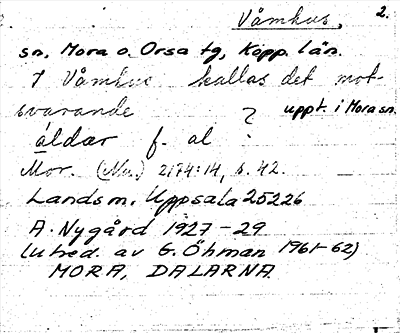 Våmhus, 2.
sn, Mora o. Orsa tg, Kopp. län.
I Våmhus kallas det mot-
svarande ? uppt. i Mora sn.
áldar f. al
Mor. (Nu.) 2174:14, s. 42.
Landsm. Uppsala 25226
A. Nygård 1927-29
(utred. av G. Öhman 1961-62)
MORA, DALARNA